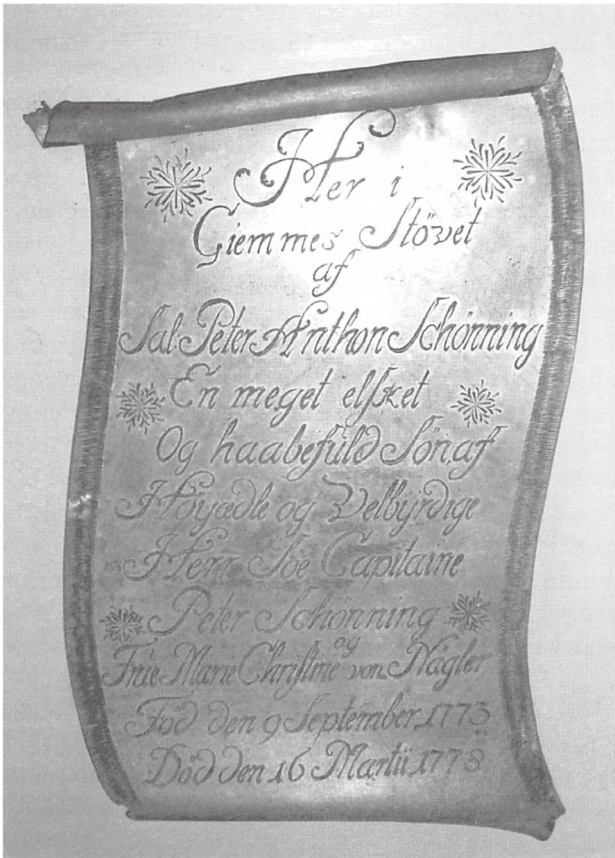 Her i
Giemmes Stövet
af
Sal. Peter Anthon Schönning
En meget elsket
Og haabefuld Sön af
Höyædle og Velbyrdige
Herr Söe Capitaine
Peter Schönning
og
Frue Marie Christine von Nägler
Fød den 9 September 1773
Død den 16 Martii 1778